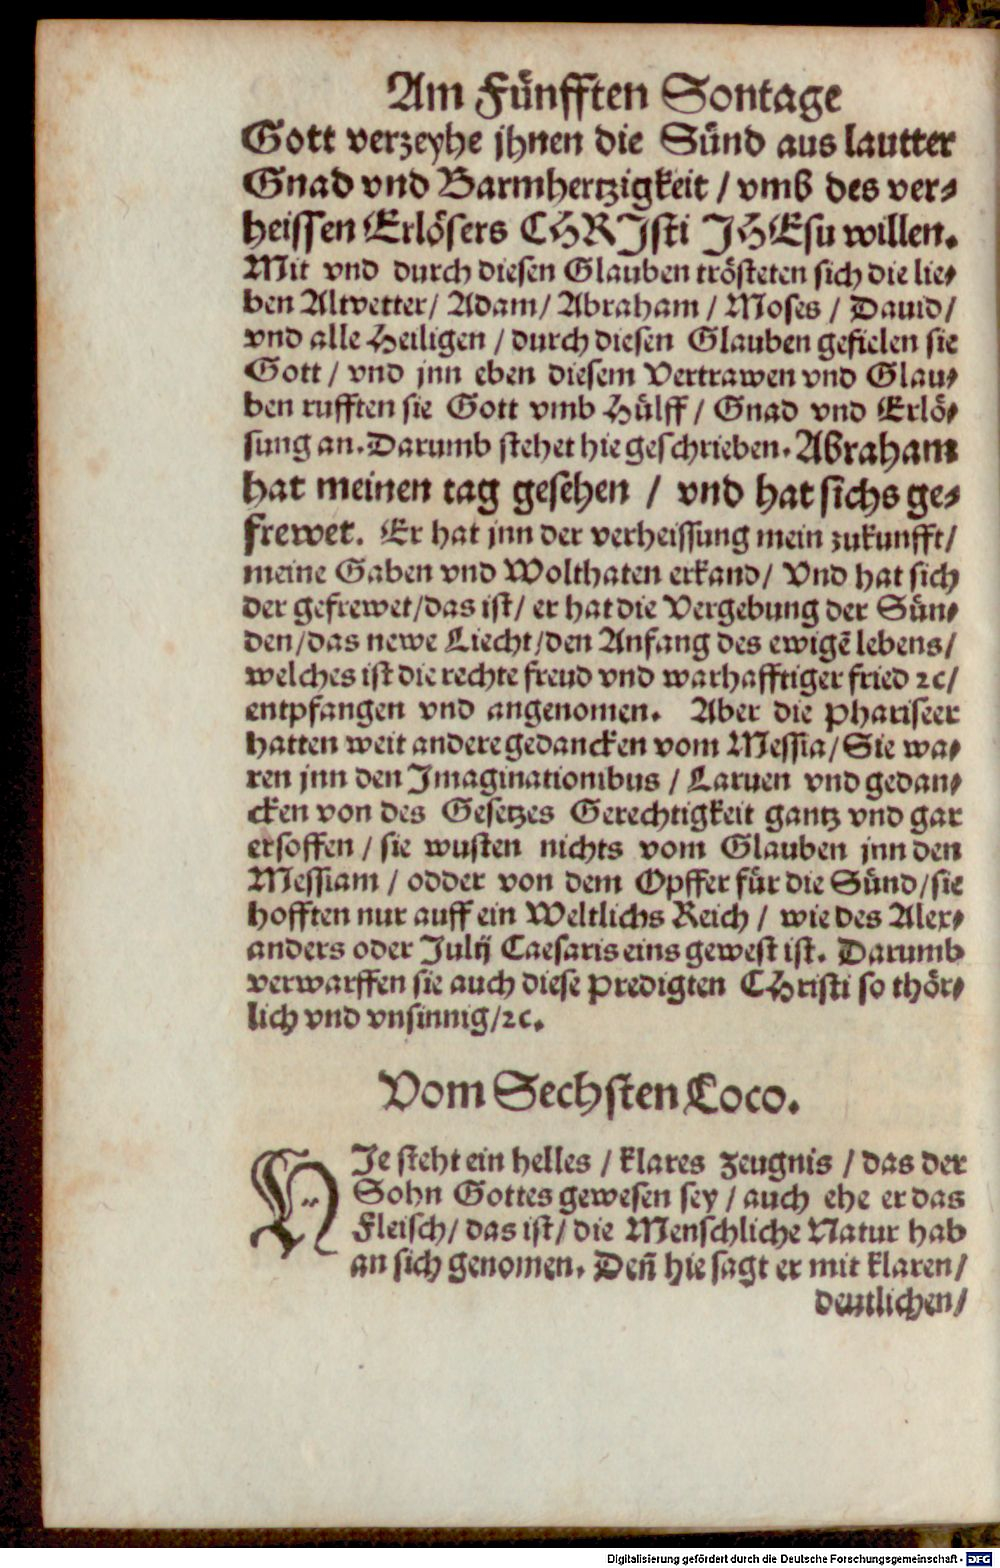 Am Fünfften Sontage
Gott verzeyhe jhnen die Sünd aus lautter
Gnad vnd Barmhertzigkeit / vmb des ver-
heissen Erlösers CHRJsti JHEsu willen.
Mit vnd durch diesen Glauben trösteten sich die lie-
ben Altvetter/ Adam/ Abraham / Moses / Dauid/
vnd alle Heiligen / durch diesen Glauben gefielen sie
Gott / vnd jnn eben diesem Vertrawen vnd Glau-
ben rufften sie Gott vmb Hülff / Gnad vnd Erlö-
sung an. Darumb stehet hie geschrieben. Abraham
hat meinen tag gesehen / vnd hat sichs ge-
frewet. Er hat jnn der verheissung mein zukunfft/
meine Gaben vnd Wolthaten erkand/ Vnd hat sich
der gefrewet/das ist/ er hat die Vergebung der Sün-
den/das newe Liecht/den Anfang des ewigē lebens/
welches ist die rechte freud vnd warhafftiger fried ꝛc/
entpfangen vnd angenomen. Aber die Phariseer
hatten weit andere gedancken vom Messia/Sie wa-
ren jnn den Jmaginationibus / Laruen vnd gedan-
cken von des Gesetzes Gerechtigkeit gantz vnd gar
ersoffen / sie wusten nichts vom Glauben jnn den
Messiam / odder von dem Opffer für die Sünd/sie
hofften nur auff ein Weltlichs Reich / wie des Alex-
anders oder Julij Caesaris eins gewest ist. Darumb
verwarffen sie auch diese Predigten CHristi so thör-
lich vnd vnsinnig/ꝛc.
Vom Sechsten Loco.
HJe steht ein helles / klares Zeugnis / das der
Sohn Gottes gewesen sey / auch ehe er das
Fleisch/ das ist/ die Menschliche Natur hab
an sich genomen. Deñ hie sagt er mit klaren/
deutlichen/
Digitalisierung gefördert durch die Deutsche Forschungsgemeinschaft - DFG